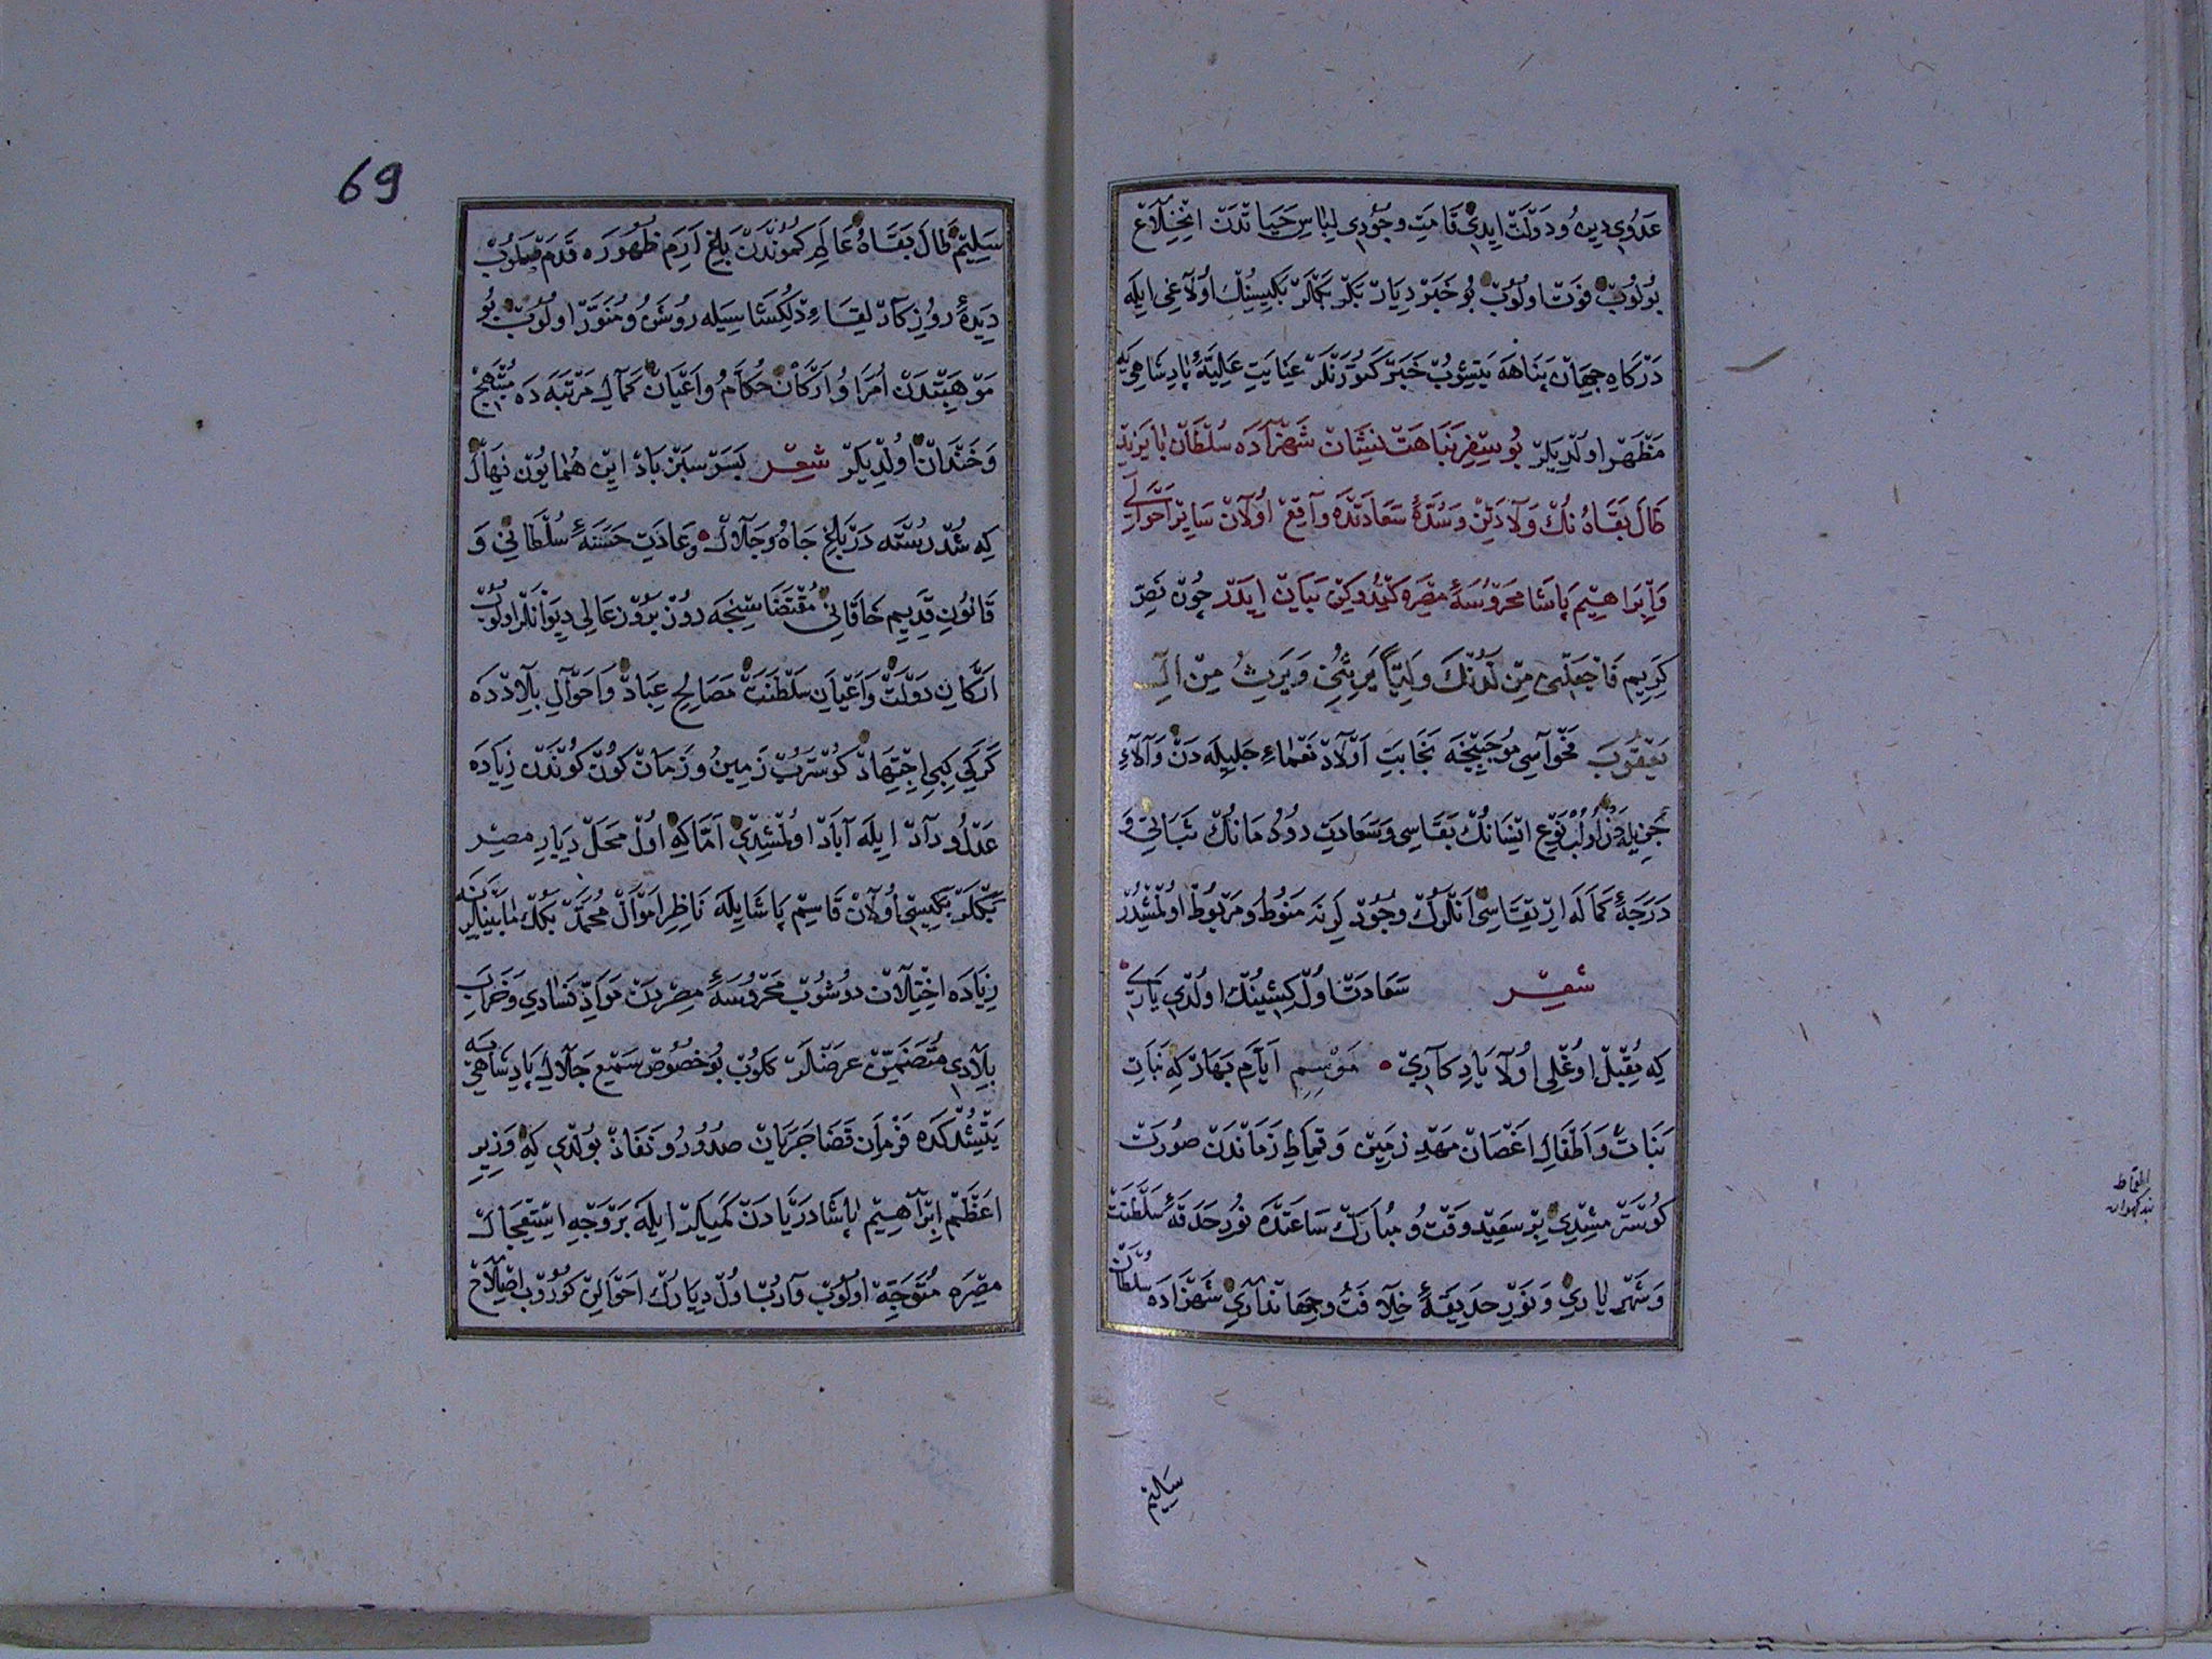 عَدُوِّ دِين و دَوْلَت ايدى قَامَتِ وجُودى لِبَاسِ حَيَاتْدَنْ انْخِلَاعْ
بُولُوبْ فَوْت اولُوبْ بُو خَبَرْ دِيَارْ بَكْرْ بَكْلَرْ بَكِيسِينُكْ اُولَاغى ايله
دَرْكَاهِ جِهَانْ پَنَاهَه يَتِشُوبْ خَبَرْ كَتُورَنْلَرْ عِنَايَتِ عَلِيَّۀ پَادِشَاهِى يَه
مَظْهَرْ اولْدِيلَرْ بُو سِفِرِ نَبَاهَتْ نِشَانْ شَهْزَادَه سُلْطَانْ بَايَزِيدْ
طَالَ بَقَاهُ نُكْ وَلَادَتِنْ وَسُدَّۀ سَعَادَتْدَه وَاقِعْ اولَانْ سَايِرْ احْوَالِى
وَاِبْرَاهِيم پَاشَا مَحْرُوسَۀ مِصْرَه كِتْدُوكِنْ بَيَانْ ايدَرْ چُونْ نَصِّ
كَرِيمِ فَاجْعَلْنى مِنْ لَدُنْكَ وَلِيًّا يَرِثُنِى وَيَرِثُ مِنْ الِ
يَعْقُوبَ فَحْوَاسِى مُوجَبِنْجَه نَجَابَتِ اَوْلَادْ نَعْمَاءِ جَلِيلَه دَنْ وَآلَاءِ
جَزِيلَه دَنْ اولُبْ نَوْعِ انْسَانُكْ بَقَاسِى وَسَعَادَتِ دُودْمَانُكْ ثَبَاتِى وَ
دَرَجَۀ كَمَالَه ارْتِقَاسِى اَنْلَرُكْ وجُودْلَرِنَه مَنُوطْ و مَرْبُوطْ اولْمِشْدُرْ
شعر سَعَادَتْ اولْ كِشِينُكْ اولْدى يَارى
كِه مُقْبِلْ اوغْلى اولَا يَادِكَارى مَوْسِمِ ايَّامِ بَهَارْ كِه بَنَاتِ
نَبَاتْ وَاَطْفَالِ اَغْصَانْ مَهْدِ زَمِينْ وَقِمَاطِ زَمَانْدَنْ صُورَتْ
كُوسْتَرْمِشْدِى بِرْ سَعِيدْ وَقْتْ و مُبَارَكْ سَاعَتْدَه نُورِ حَدَقَۀ سَلْطَنَتْ
وَشَهْرِيَارى وَنَوْرِ حَدِيقَۀ خِلَافَتْ و جِهَانْدَارى شَهْزَادَه سُلْطَانْ
سَلِيم
القماط
بند كهواره
69
سَلِيمْ طَالَ بَقَاهُ عَالَمِ كُمُونْدَنْ بَاغِ اَرَمِ ظُهُورَه قَدَمْ صَلُوبْ
دِيدۀ روزكَارْ لِقَاءِ دِلْكُشَاسِيلَه رُوشَن و مُنَوَّرْ اولُوبْ بُو
مَوْهِبَتْدَنْ اُمَرَا و اَرْكَانْ حُكَّام و اَعْيَانْ كَمَالِ مَرْتَبَه دَه مُبْتَهِجْ
وَخَنْدَانْ اولْدِيلَرْ شعر بَسَرْ سَبْزْ بَادْ اينْ هُمَايُونْ نِهَالْ
كِه شُدْ رُسْتَه دَرْ بَاغِ جَاهُ وجَلَالْ وعَادَتِ حَسَنَۀ سُلْطَانِى وَ
قَانُونِ قَدِيمِ خَاقَانى مُقْتَضَاسِنْجَه دُونْ بَرُونْ عَالى دِيوَانْلَرْ اولُوبْ
اَرْكَانِ دَوْلَتْ وَاَعْيَانِ سَلْطَنَتْ مَصَالِحِ عِبَادْ وَاَحْوَالِ بِلَادْدَه
كَرَكِى كِبِى اجْتِهَادْ كُوسْتَرُبْ زَمِينُ و زَمَانْ كُونْ كُونْدَنْ زِيَادَه
عَدْلُ و دَادْ ايله آبَادْ اولْمِشْدِى اَمَّا كِه اولْ مَحَلْ دِيَارِ مِصْر
بَكْلَرْبَكِيسِى اولَانْ قَاسِمْ پَاشَايِلَه نَاظِرِ اَمْوَالْ مُحَمَّدْ بَكُكْ مَابَيْنْلَرِينَه
زِيَادَه اخْتِلَافْ دُوشُوبْ مَحْرُوسَۀ مِصْرِدَنْ مَوَادِّ فَسَادى وَخَرَابِ
بِلَادى مُتَضَمِّنْ عَرَضْلَرْ كَلُوبْ بُو خُصُوصْ سَمْعِ جَلَالِ پَادِشَاهِى يَه
يَتِشْدُكْدَه فَرْمَانِ قَضَا جَرَيَانْ صُدُورُ و نَفَاذْ بُولْدِى كِه وَزِيرِ
اَعْظَمْ اِبْرَاهِيمْ پَاشَا دَرْيَادَنْ كَمِيلَرْ ايلَه بَرْ وَجْهِ اسْتِعْجَالْ
مِصْرَه مُتَوَجِّهْ اولُوبْ وَارُبْ اولْ دِيَارُكْ احْوَالِنْ كُورُوبْ اصْلَاحْ